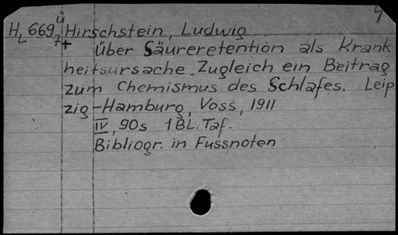 4
HL 669 ü 7+ Hirschstein, Ludwig
Über Säureretention als Krank
heitsursache. Zugleich ein Beitrag
zum Chemismus des Schlafes. Leip
zig-Hamburg, Voss, 1911
IV, 90s 1BL. Taf.
Bibliogr. in Fussnoten